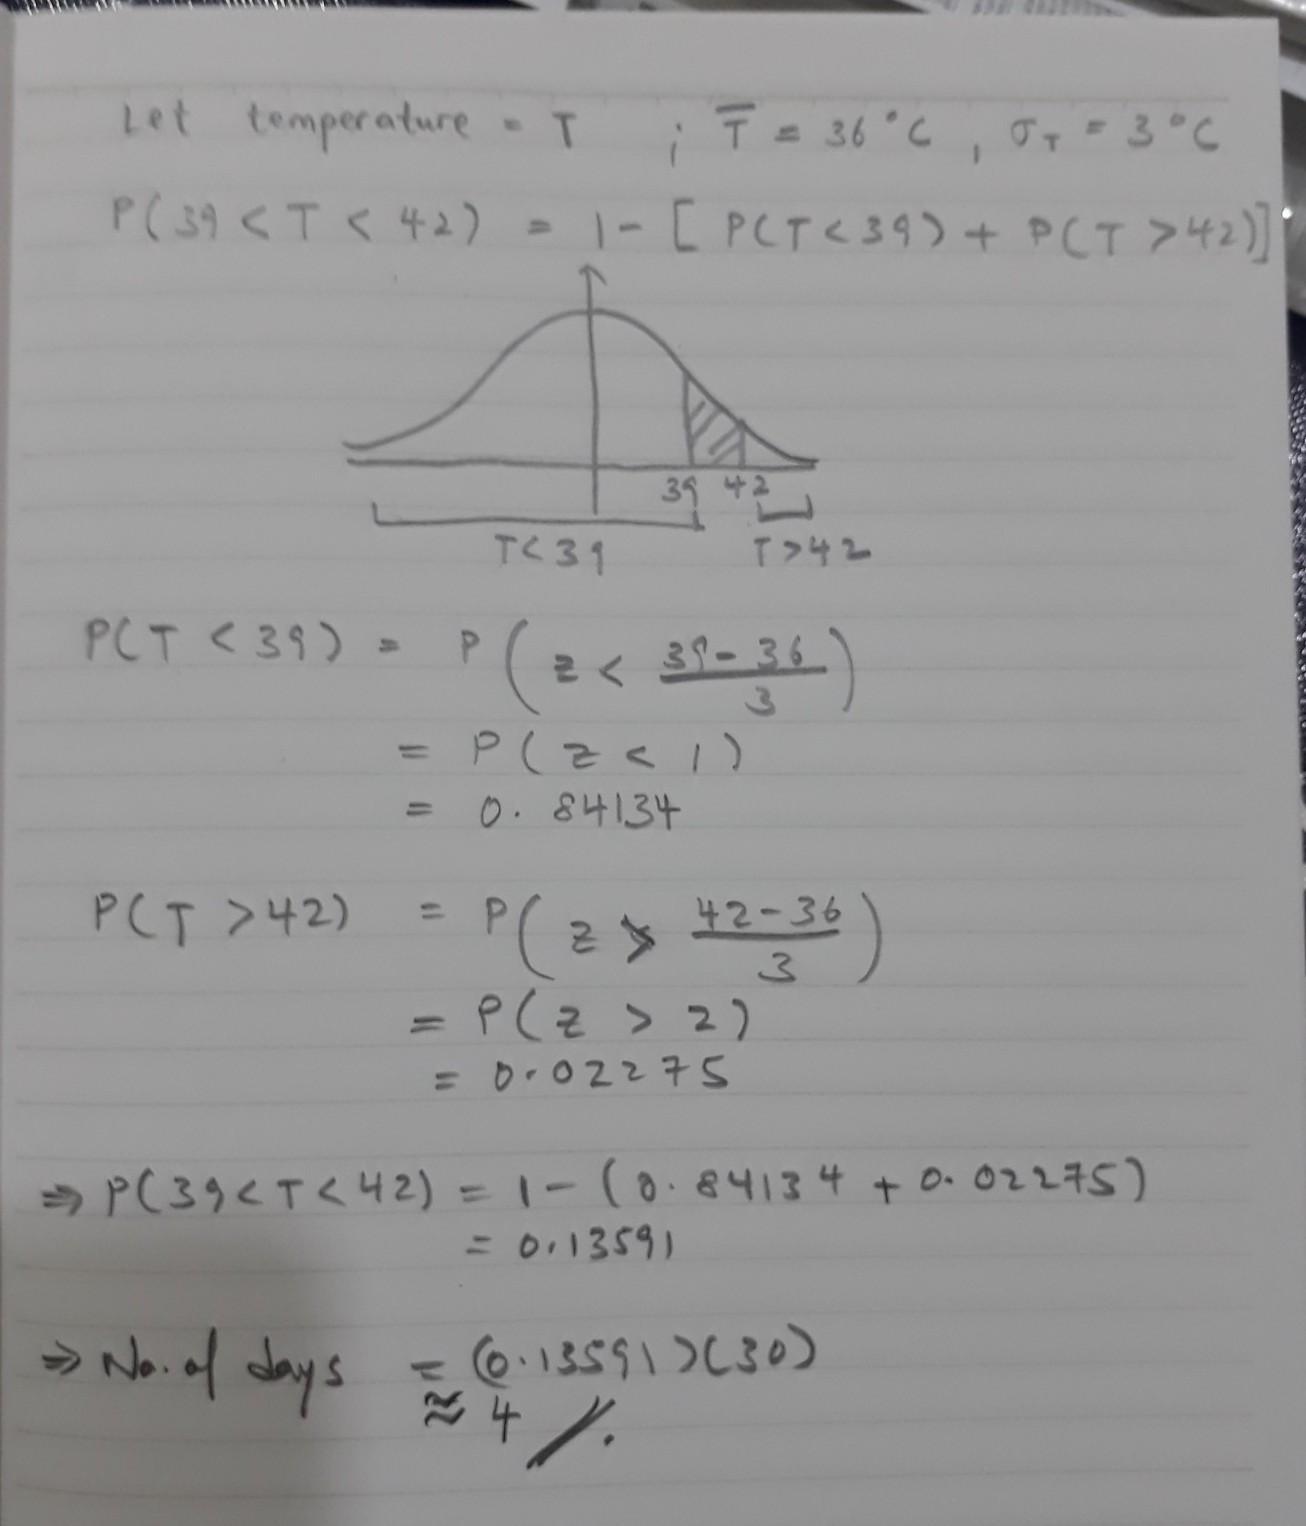 Let temperature = T ; T̅ = 36°C , σ_T = 3°C
P(39 < T < 42) = 1 - [ P(T < 39) + P(T > 42)]
39 42
T < 39 T > 42
P(T < 39) = P( z < (39 - 36)/3 )
= P( z < 1 )
= 0.84134
P(T > 42) = P( z > (42 - 36)/3 )
= P( z > 2 )
= 0.02275
⇒ P(39 < T < 42) = 1 - (0.84134 + 0.02275)
= 0.13591
⇒ No. of days = (0.13591)(30)
≈ 4 //.